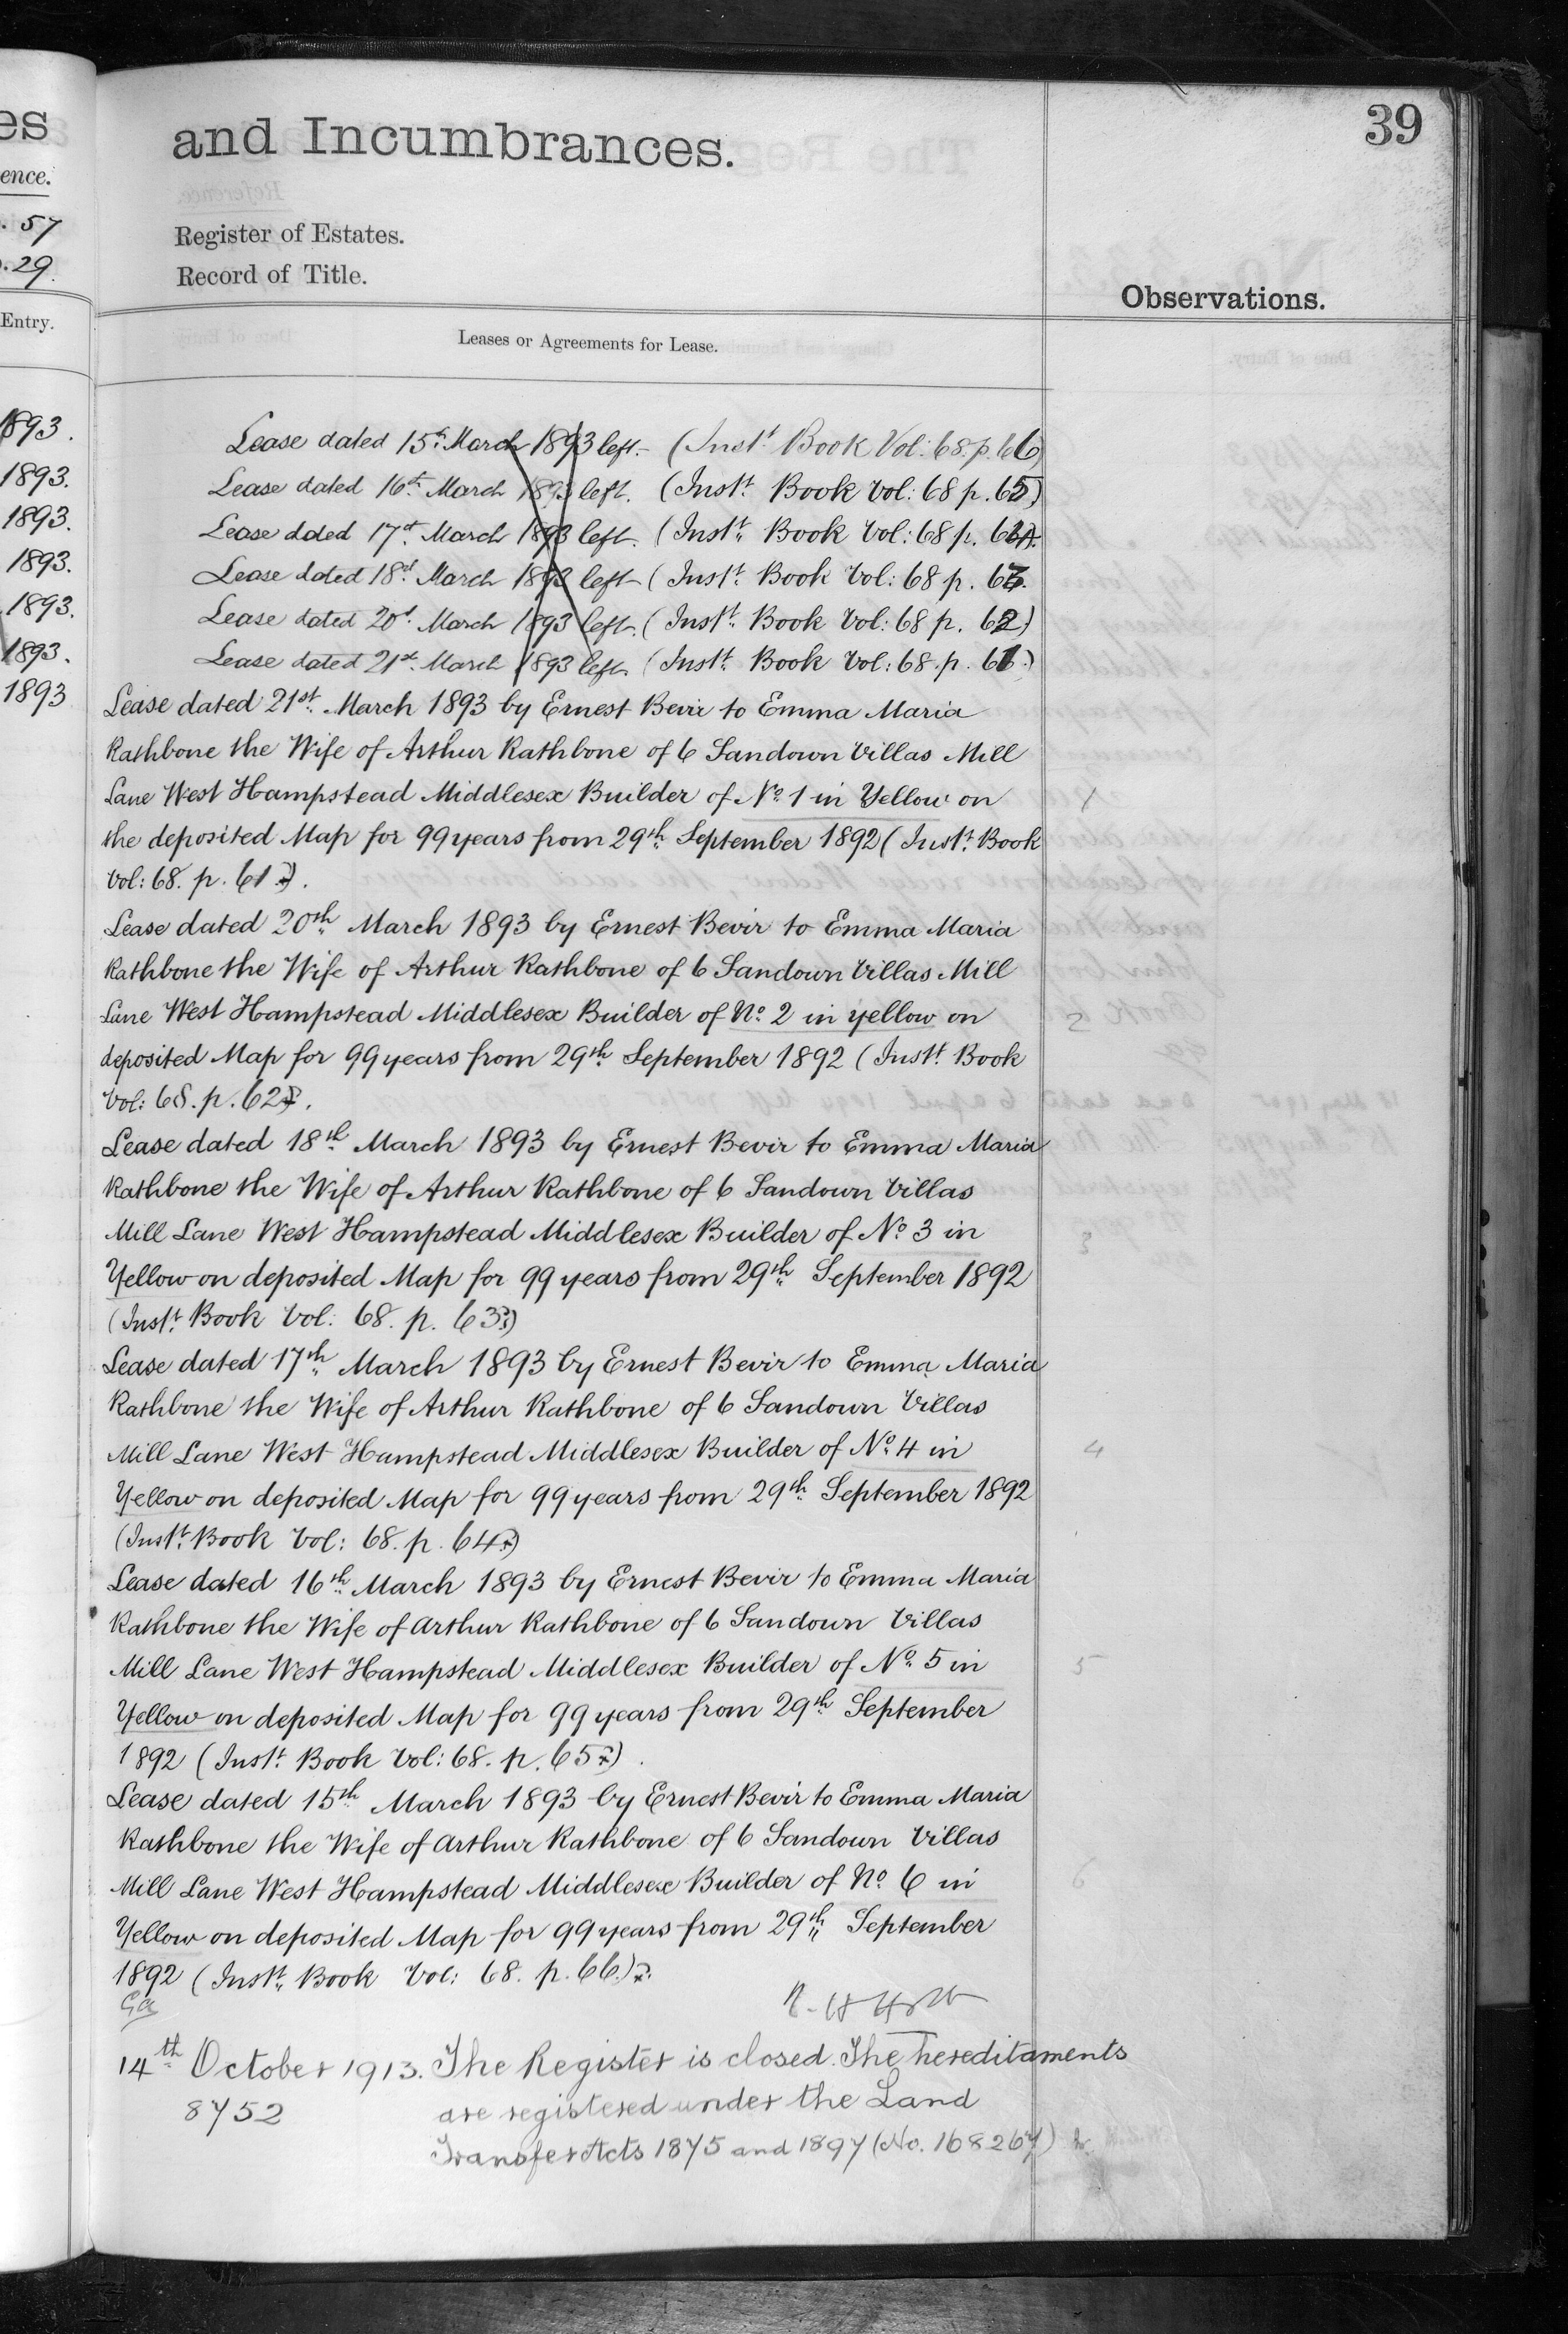 es
ence.
. 57
p. 29.
Entry.
1893.
1893.
1893.
1893.
1893.
1893.
1893
39
and Incumbrances.
Register of Estates.
Record of Title.
Observations.
Leases or Agreements for Lease.
Lease dated 15th March 1893 left. (Instt Book Vol: 68. p. 66)
Lease dated 16th March 1893 left. (Instt Book Vol: 68 p. 65)
Lease dated 17th March 1893 left. (Instt Book Vol: 68 p. 64.
Lease dated 18th March 1893 left (Instt Book Vol: 68 p. 63.
Lease dated 20th March 1893 left. (Instt Book Vol: 68 p. 62)
Lease dated 21st March 1893 left. (Instt Book Vol: 68. p. 61.)
Lease dated 21st March 1893 by Ernest Bevir to Emma Maria
Rathbone the Wife of Arthur Rathbone of 6 Sandown Villas Mill
Lane West Hampstead Middlesex Builder of No 1 in Yellow on
1
the deposited Map for 99 years from 29th September 1892 (Instt Book
Vol: 68. p. 61).
Lease dated 20th March 1893 by Ernest Bevir to Emma Maria
Rathbone the Wife of Arthur Rathbone of 6 Sandown Villas Mill
Lane West Hampstead Middlesex Builder of No 2 in yellow on
2
deposited Map for 99 years from 29th September 1892 (Instt Book
Vol: 68. p. 62).
Lease dated 18th March 1893 by Ernest Bevir to Emma Maria
Rathbone the Wife of Arthur Rathbone of 6 Sandown Villas
Mill Lane West Hampstead Middlesex Builder of No 3 in
3
Yellow on deposited Map for 99 years from 29th September 1892
(Instt Book Vol: 68. p. 63)
Lease dated 17th March 1893 by Ernest Bevir to Emma Maria
Rathbone the Wife of Arthur Rathbone of 6 Sandown Villas
Mill Lane West Hampstead Middlesex Builder of No 4 in
4
Yellow on deposited Map for 99 years from 29th September 1892
(Instt Book Vol: 68. p. 64)
Lease dated 16th March 1893 by Ernest Bevir to Emma Maria
Rathbone the Wife of Arthur Rathbone of 6 Sandown Villas
Mill Lane West Hampstead Middlesex Builder of No 5 in
5
Yellow on deposited Map for 99 years from 29th September
1892 (Instt Book Vol: 68. p. 65).
Lease dated 15th March 1893 by Ernest Bevir to Emma Maria
Rathbone the Wife of Arthur Rathbone of 6 Sandown Villas
Mill Lane West Hampstead Middlesex Builder of No 6 in
6
Yellow on deposited Map for 99 years from 29th September
1892 (Instt Book Vol: 68. p. 66.)
14th October 1913. The Register is closed. The hereditaments
8752 are registered under the Land
Transfer Acts 1875 and 1897 (No. 168267)